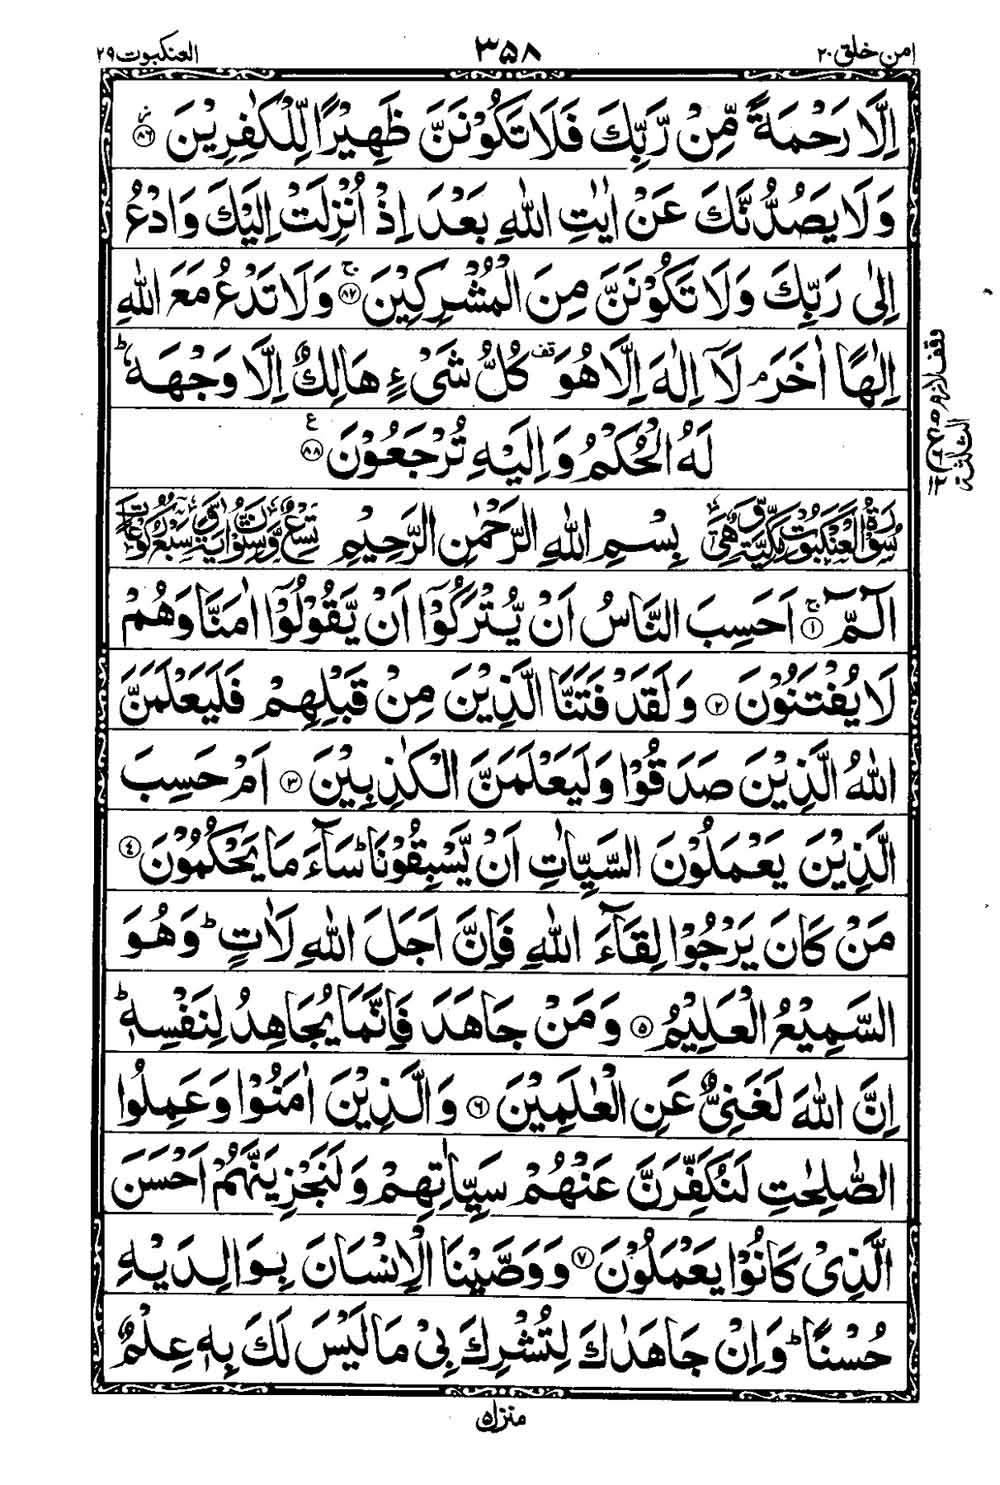 امن خلق ٢٠ ٣٥٨ العنكبوت ٢٩
اِلَّا رَحْمَةً مِّنْ رَّبِّكَ فَلَا تَكُوْنَنَّ ظَهِيْرًا لِّلْكٰفِرِيْنَ ﴿٨٦﴾
وَلَا يَصُدُّنَّكَ عَنْ اٰيٰتِ اللّٰهِ بَعْدَ اِذْ اُنْزِلَتْ اِلَيْكَ وَادْعُ
اِلٰى رَبِّكَ وَلَا تَكُوْنَنَّ مِنَ الْمُشْرِكِيْنَ ﴿٨٧﴾ وَلَا تَدْعُ مَعَ اللّٰهِ
اِلٰهًا اٰخَرَ ۘ لَآ اِلٰهَ اِلَّا هُوَ قف كُلُّ شَيْءٍ هَالِكٌ اِلَّا وَجْهَهٗ ؕ
لَهُ الْحُكْمُ وَاِلَيْهِ تُرْجَعُوْنَ ﴿٨٨﴾ ع
سُوْرَةُ الْعَنْكَبُوْتِ مَكِّيَّةٌ وَّهِيَ بِسْمِ اللّٰهِ الرَّحْمٰنِ الرَّحِيْمِ تِسْعٌ وَّسِتُّوْنَ اٰيَةً وَّسَبْعُ رُكُوْعَاتٍ
الٓمّٓ ﴿١﴾ اَحَسِبَ النَّاسُ اَنْ يُّتْرَكُوْٓا اَنْ يَّقُوْلُوْٓا اٰمَنَّا وَهُمْ
لَا يُفْتَنُوْنَ ﴿٢﴾ وَلَقَدْ فَتَنَّا الَّذِيْنَ مِنْ قَبْلِهِمْ فَلَيَعْلَمَنَّ
اللّٰهُ الَّذِيْنَ صَدَقُوْا وَلَيَعْلَمَنَّ الْكٰذِبِيْنَ ﴿٣﴾ اَمْ حَسِبَ
الَّذِيْنَ يَعْمَلُوْنَ السَّيِّاٰتِ اَنْ يَّسْبِقُوْنَا ؕ سَآءَ مَا يَحْكُمُوْنَ ﴿٤﴾
مَنْ كَانَ يَرْجُوْا لِقَآءَ اللّٰهِ فَاِنَّ اَجَلَ اللّٰهِ لَاٰتٍ ؕ وَهُوَ
السَّمِيْعُ الْعَلِيْمُ ﴿٥﴾ وَمَنْ جَاهَدَ فَاِنَّمَا يُجَاهِدُ لِنَفْسِهٖ ؕ
اِنَّ اللّٰهَ لَغَنِيٌّ عَنِ الْعٰلَمِيْنَ ﴿٦﴾ وَالَّذِيْنَ اٰمَنُوْا وَعَمِلُوا
الصّٰلِحٰتِ لَنُكَفِّرَنَّ عَنْهُمْ سَيِّاٰتِهِمْ وَلَنَجْزِيَنَّهُمْ اَحْسَنَ
الَّذِيْ كَانُوْا يَعْمَلُوْنَ ﴿٧﴾ وَوَصَّيْنَا الْاِنْسَانَ بِوَالِدَيْهِ
حُسْنًا ؕ وَاِنْ جَاهَدٰكَ لِتُشْرِكَ بِيْ مَا لَيْسَ لَكَ بِهٖ عِلْمٌ
منزل ٥